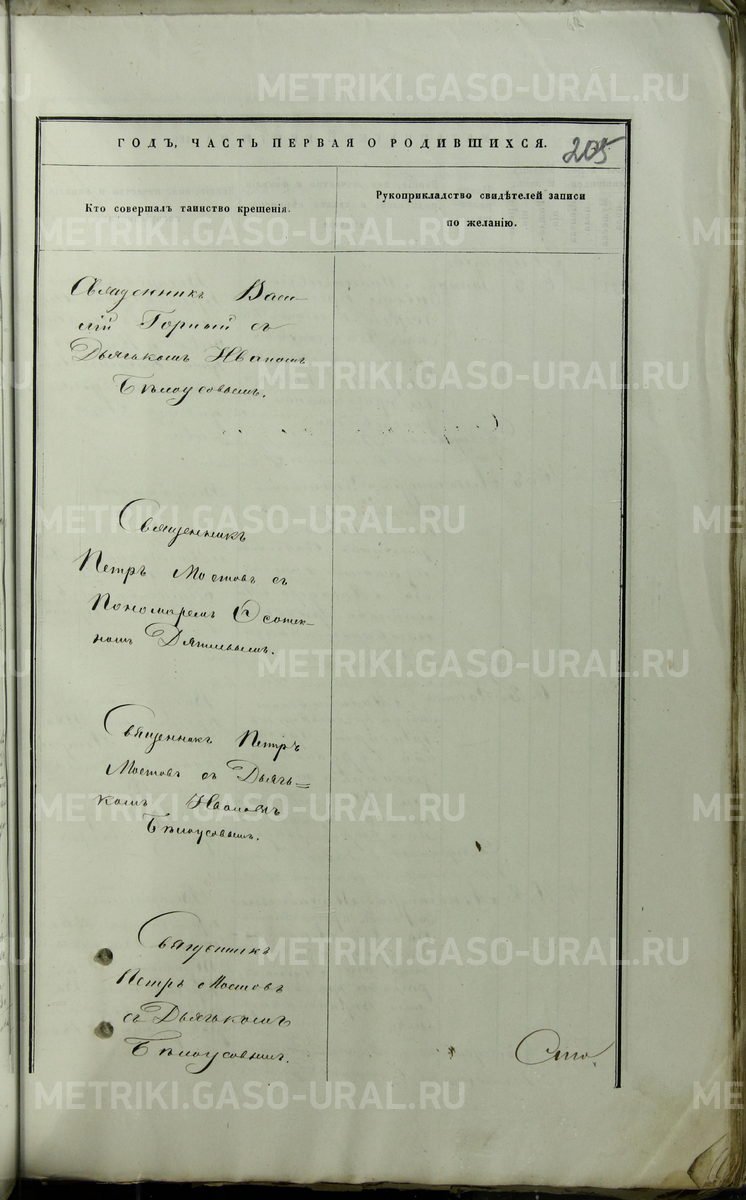 ГОДЪ, ЧАСТЬ ПЕРВАЯ О РОДИВШИХСЯ.
205
Кто совершалъ таинство крещенія.
Рукоприкладство свидѣтелей записи
по желанію.
Священникъ Васи-
лій Горный съ
Дьячькомъ Иваномъ
Бѣлоусовымъ.
Священникъ
Петръ Мостовъ съ
Пономаремъ
Дягилевымъ.
Священникъ Петръ
Мостовъ съ Дьячь=
комъ Иваномъ
Бѣлоусовымъ.
Священникъ
Петръ Мостовъ
съ Дьячькомъ
Бѣлоусовымъ.
Сто
METRIKI.GASO-URAL.RU